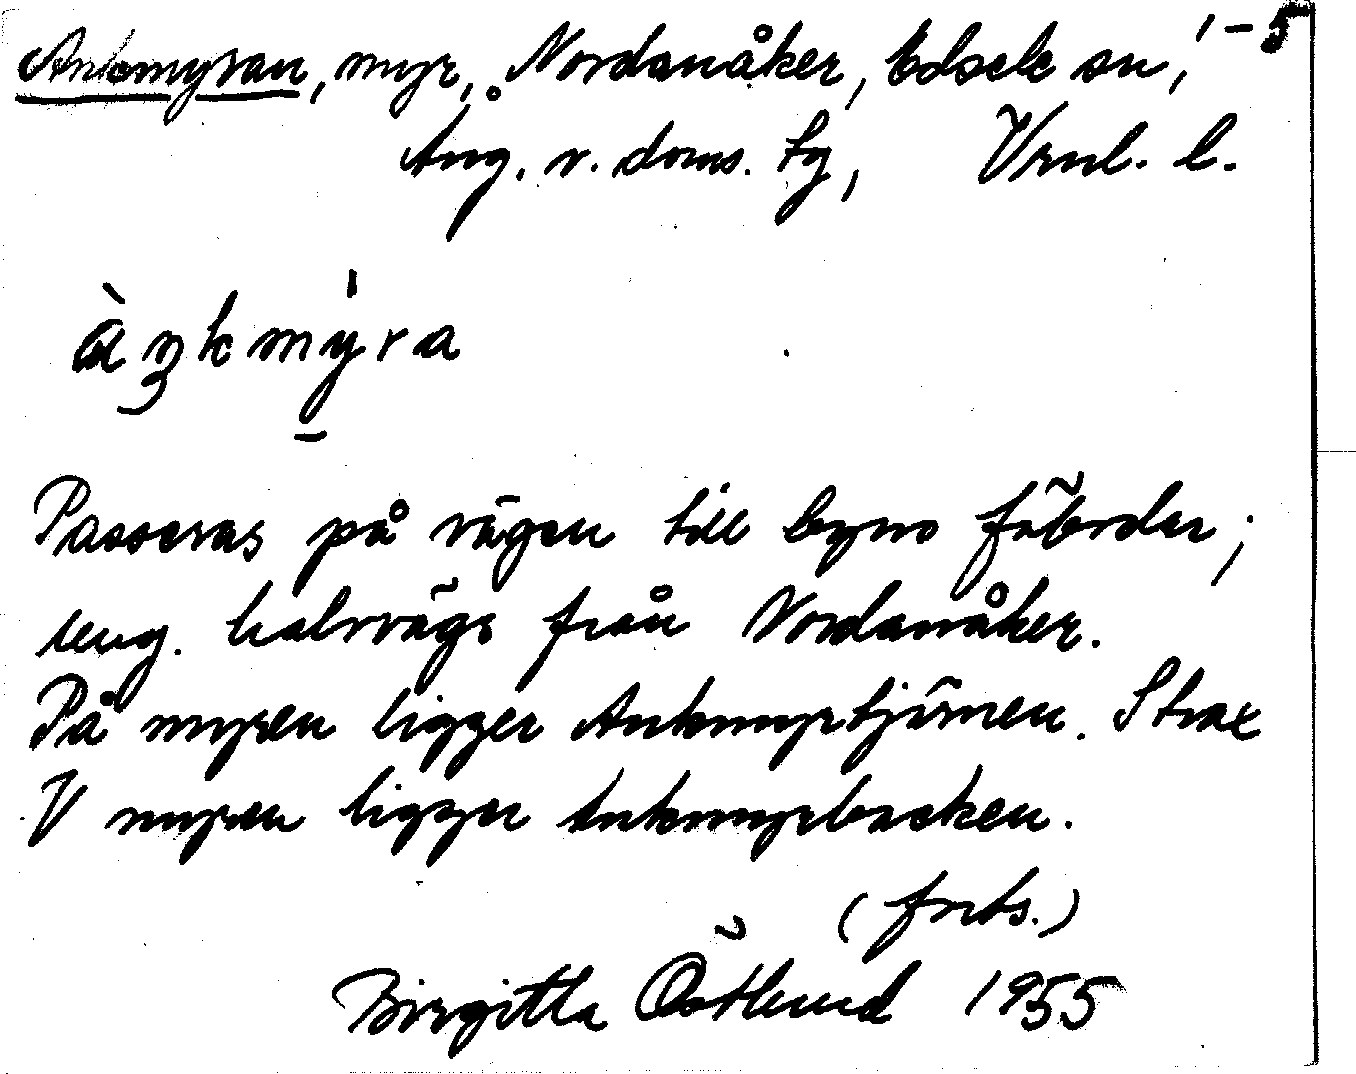 Ankmyran, myr, Nordanåker, Edsele sn,
Ång. v. doms. tg, Vrnl. l.
àŋkmy̠ra
Passeras på vägen till byns fäbodar;
ung. halvvägs från Nordanåker.
På myren ligger Ankmyrtjärnen. Strax
V myren ligger Ankmyrbacken.
(forts.)
Birgitta Östlund 1955